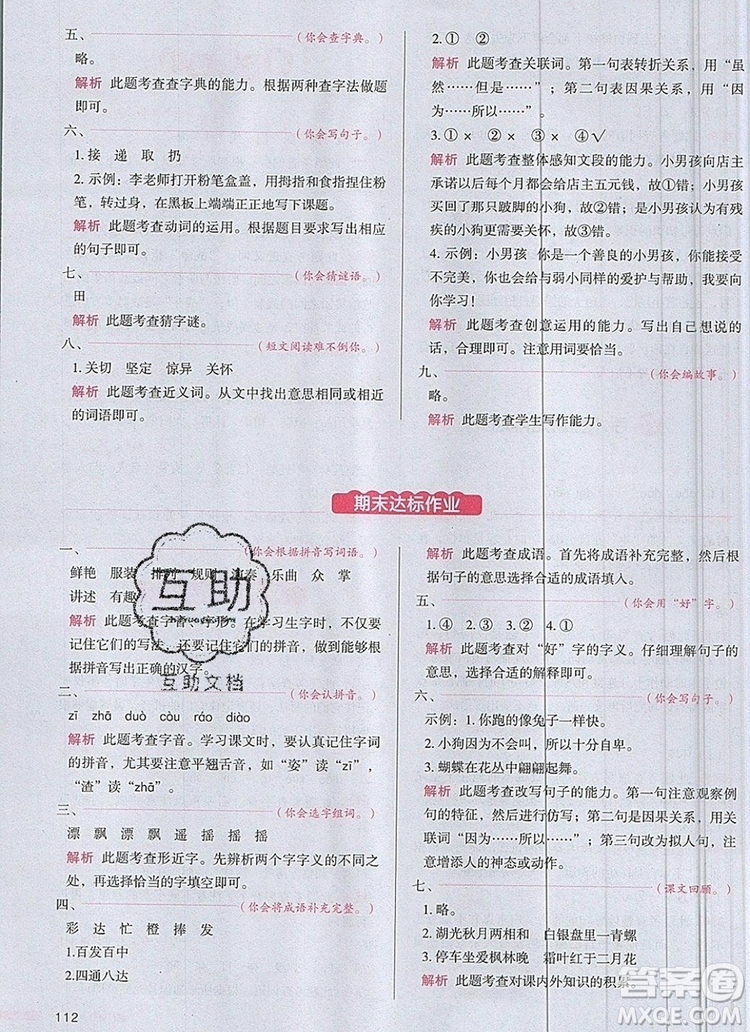 五、
(你会查字典。)
略。
解析 此题考查查字典的能力。根据两种查字法做题
即可。
六、
(你会写句子。)
1.接 递 取 扔
2.示例：李老师打开粉笔盒盖，用拇指和食指捏住粉
笔，转过身，在黑板上端端正正地写下课题。
解析 此题考查动词的运用。根据题目要求写出相应
的句子即可。
七、
(你会猜谜语。)
田
解析 此题考查猜字谜。
八、
(短文阅读难不倒你。)
1.关切 坚定 惊异 关怀
解析 此题考查近义词。从文中找出意思相同或相近
的词语即可。
2.① ②
解析 此题考查关联词。第一句表转折关系，用“虽
然……但是……”；第二句表因果关系，用“因
为……所以……”。
3.①× ②× ③× ④√
解析 此题考查整体感知文段的能力。小男孩向店主
承诺以后每个月都会还给店主五元钱，故①错；小男孩
买回了那只跛脚的小狗，故②错；小男孩认为有残
疾的小狗我不需要同情，故③错。
4.示例：小男孩 你是一个善良的小男孩，你能接受
不完美，你也给与弱小同样的爱护与帮助，我要向
你学习！
解析 此题考查创意运用的能力。写出自己想说的
话，合理即可。注意用词要恰当。
九、
(你会编故事。)
略。
解析 此题考查学生写作能力。
期末达标作业
一、
(你会根据拼音写词语。)
鲜艳 服装 规则 演奏 乐曲 众 掌
讲述 有趣
解析 此题考查字音、字形。在学习生字时，不仅要
记住它们的写法，还要记住它们的拼音，这样才能
根据拼音写出正确的汉字。
二、
(你会认拼音。)
zī zhā duò còu ráo diào
解析 此题考查字音。学习课文时，要认真识记字词
的拼音。尤其要注意平翘舌音，如“姿”读“zī”，
“渣”读“zhā”。
三、
(你会选字组词。)
漂 飘 漂 飘 遥 摇 摇 摇
解析 此题考查形近字。先辨析两个字字义的不同之
处，再选择恰当的字填空即可。
四、
(你会将成语补充完整。)
彩 达 忙 橙 捧 发
1.百发百中
2.四通八达
解析 此题考查成语。首先将成语补充完整，然后根
据句子的意思选择合适的成语填入。
五、
(你会用“好”字。)
1.④ 2.② 3.① 4.①
解析 此题考查对“好”字的字义。仔细理解句子的
意思，选择合适的解释即可。
六、
(你会写句子。)
示例：1.你跑的像兔子一样快。
2.小狗因为不会叫，所以十分苦恼。
3.蝴蝶在花丛中翩翩起舞。
解析 此题考查改写句子的能力。第一句注意观察例
句的特征，然后进行仿写；第二句改写句子，用关
联词“因为……所以……”；第三句改为拟人句，注
意增添人的神态或动作。
七、
(课文回顾。)
1.略。
2.湖光秋月两相和 白银盘里一青螺
3.停车坐爱枫林晚 霜叶红于二月花
解析 此题考查对课内外知识的积累。
112
互助
互助文档
答案圈
MXQE.COM